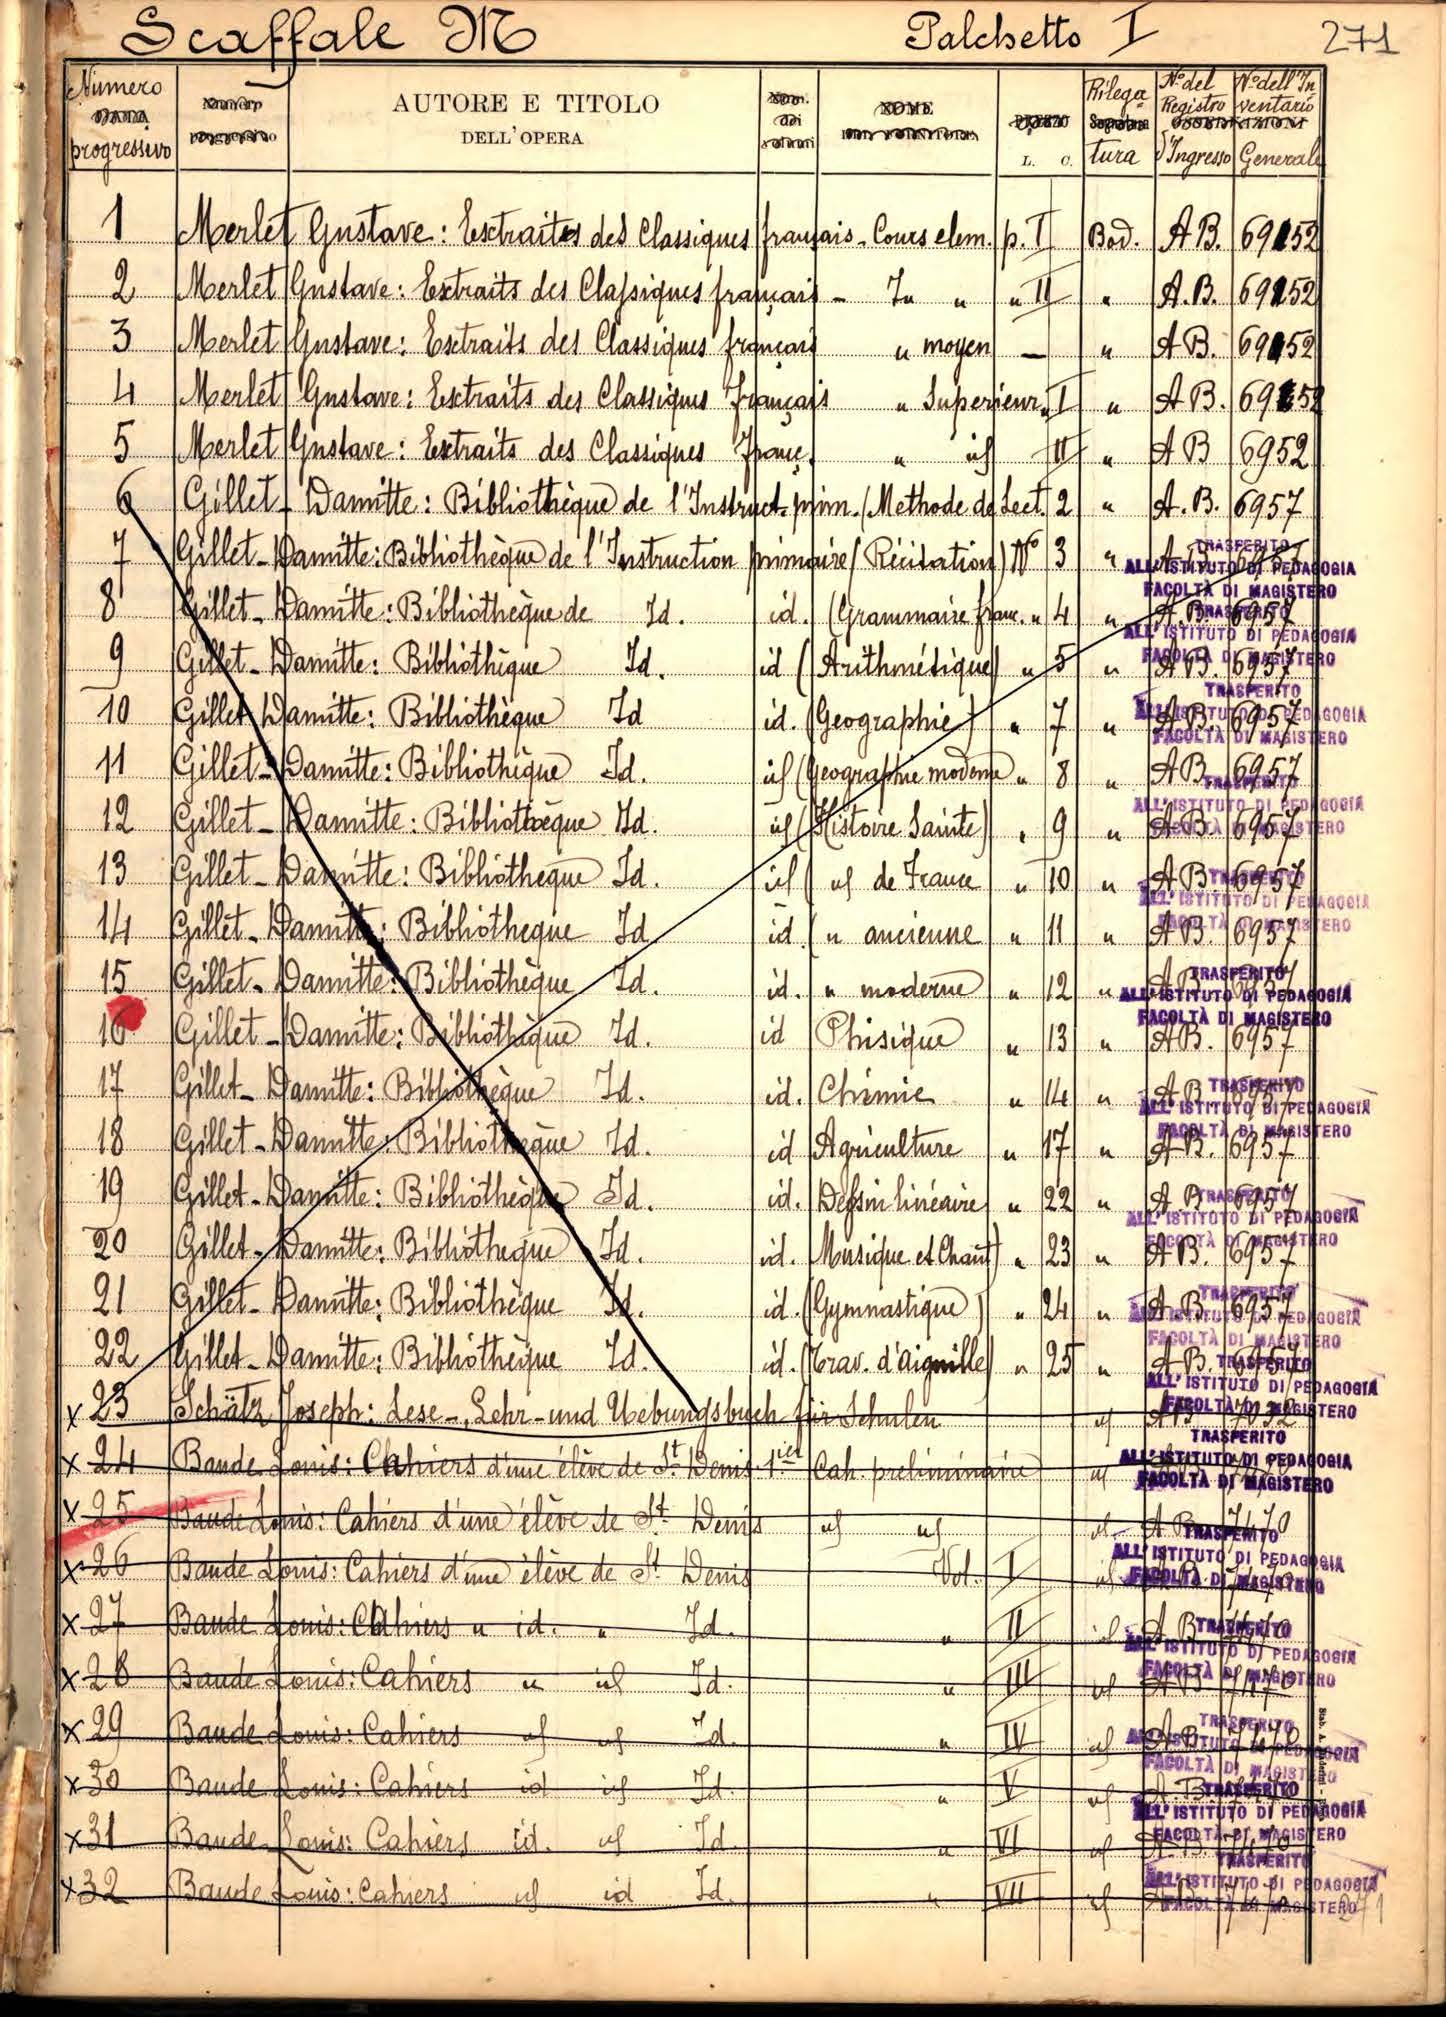 Scaffale M Palchetto I 271
Numero progressivo AUTORE E TITOLO DELL'OPERA L. C. Rilegatura N.º del Registro d'Ingresso N.º dell'Inventario Generale
1 Merlet Gustave: Extraits des Classiques français - Cours elem. p. I Bod. A B. 69152
2 Merlet Gustave: Extraits des Classiques français - Id " " II " A.B. 69152
3 Merlet Gustave: Extraits des Classiques français " moyen — " A B. 69152
4 Merlet Gustave: Extraits des Classiques français " Superieur " I " A B. 69152
5 Merlet Gustave: Extraits des Classiques franç. " id II " A B 6952
6 Gillet - Damitte: Bibliothèque de l'Instruct. prim. (Methode de Lect. 2 " A.B. 6957
7 Gillet - Damitte: Bibliothèque de l'Instruction primaire (Récitation) Nº 3 " A.B. 6957
8 Gillet - Damitte: Bibliothèque de Id. id. (Grammaire franc. " 4 " A.B. 6957
9 Gillet - Damitte: Bibliothèque Id. id (Arithmétique) " 5 " A B. 6957
10 Gillet Damitte: Bibliothèque Id id. (Geographie) " 7 " A B. 6957
11 Gillet - Damitte: Bibliothèque Id. id (Geographie moderne " 8 " A B. 6957
12 Gillet - Damitte: Bibliothèque Id. id (Histoire Sainte) " 9 " A B. 6957
13 Gillet - Damitte: Bibliotheque Id. id ( id de France " 10 " A B. 6957
14 Gillet - Damitte: Bibliotheque Id. id. ( " ancienne " 11 " A B. 6957
15 Gillet - Damitte: Bibliothèque Id. id. " moderne " 12 " A B. 6957
16 Gillet - Damitte: Bibliothèque Id. id Phisique " 13 " A B. 6957
17 Gillet - Damitte: Bibliothèque Id. id. Chimie " 14 " A B 6957
18 Gillet - Damitte: Bibliothèque Id. id Agriculture " 17 " A B. 6957
19 Gillet - Damitte: Bibliothèque Id. id. Dessin linéaire " 22 " A B. 6957
20 Gillet - Damitte: Bibliotheque Id. id. Musique et Chant) " 23 " A B. 6957
21 Gillet - Damitte: Bibliothèque Id. id. (Gymnastique) " 24 " A B. 6957
22 Gillet - Damitte: Bibliothèque Id. id. (Trav. d'aiguille) " 25 " A.B. 6957
x 23 Schätz Joseph: Lese-, Lehr- und Uebungsbuch für Schulen id A B 7032
x 24 Baude Louis: Cahiers d'une élève de St. Denis 1ier Cah. preliminaire id
x 25 Baude Louis: Cahiers d'une élève de St. Denis id id id A B 7470
x 26 Baude Louis: Cahiers d'une élève de St. Denis Vol. I id
x 27 Baude Louis: Cahiers " id. " Id. " II id A B 7470
x 28 Baude Louis: Cahiers " id Id. " III id A B 7470
x 29 Baude Louis: Cahiers id id Id. " IV id A B 7470
x 30 Baude Louis: Cahiers id id Id. " V id A.B.
x 31 Baude Louis: Cahiers id. id Id. " VI id A.B. 7470
x 32 Baude Louis: Cahiers id id Id. " VII id A B 7470
TRASFERITO
ALL'ISTITUTO DI PEDAGOGIA
FACOLTÀ DI MAGISTERO
271